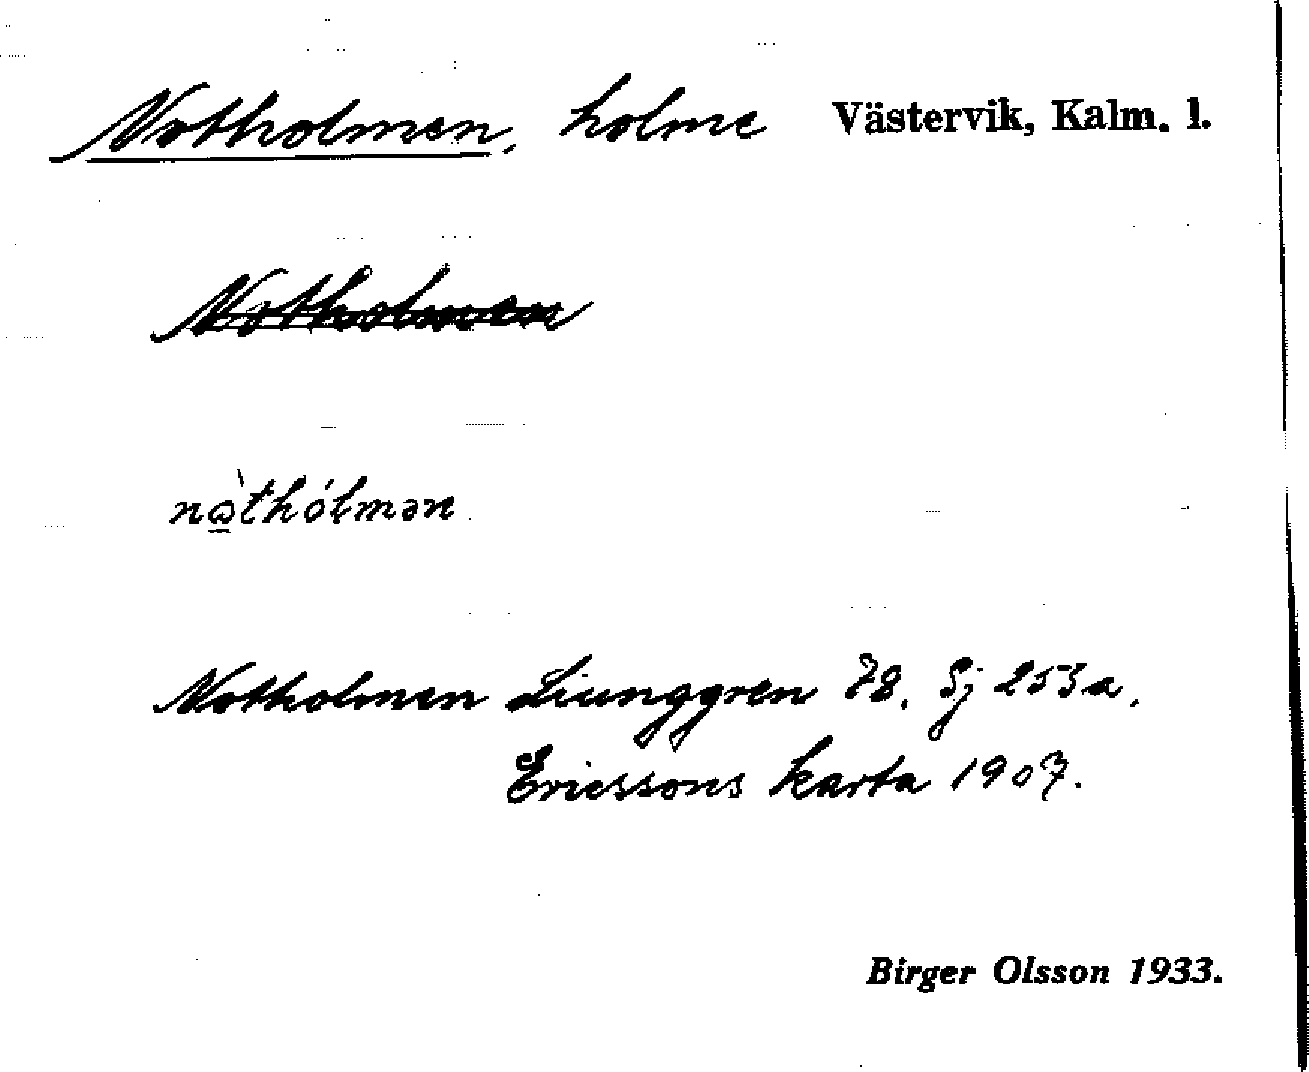 Notholmen, holme Västervik, Kalm. l.
Notholmen
nòthólmən
Notholmen Liunggren 78. Sj 253a,
Ericssons karta 1907.
Birger Olsson 1933.